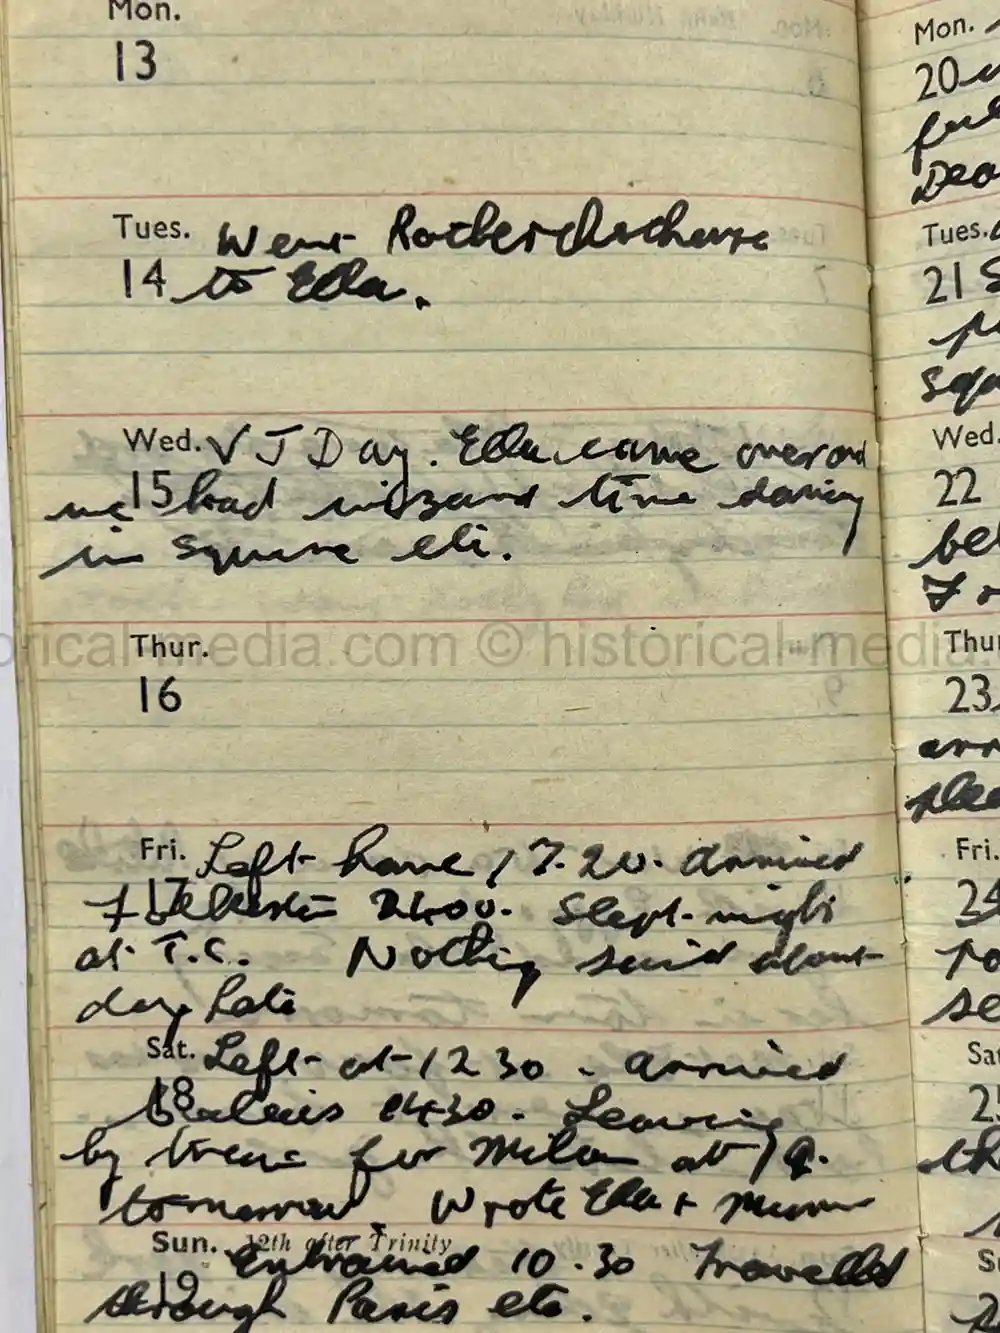 Mon.
13
Tues. Went Rotherhithe
14 to Ella.
Wed. V J Day. Ella came over and
we 15 had wizard time dancing
in square etc.
historical-media.com © historical-media.
Thur.
16
Fri. Left home 17.20. arrived
17 Folkestone 2400. Slept night
at T.C. Nothing said about
day late
Sat. Left at 1230. arrived
18 Calais 1430. Leaving
by train for Milan at 19.
tomorrow Wrote Ella + Mum
Sun. 12th after Trinity
Entrained 10.30 Travelled
19 through Paris etc.
Mon.
20
Tues.
21
Wed.
22
Thur
23
Fri.
24
Sat